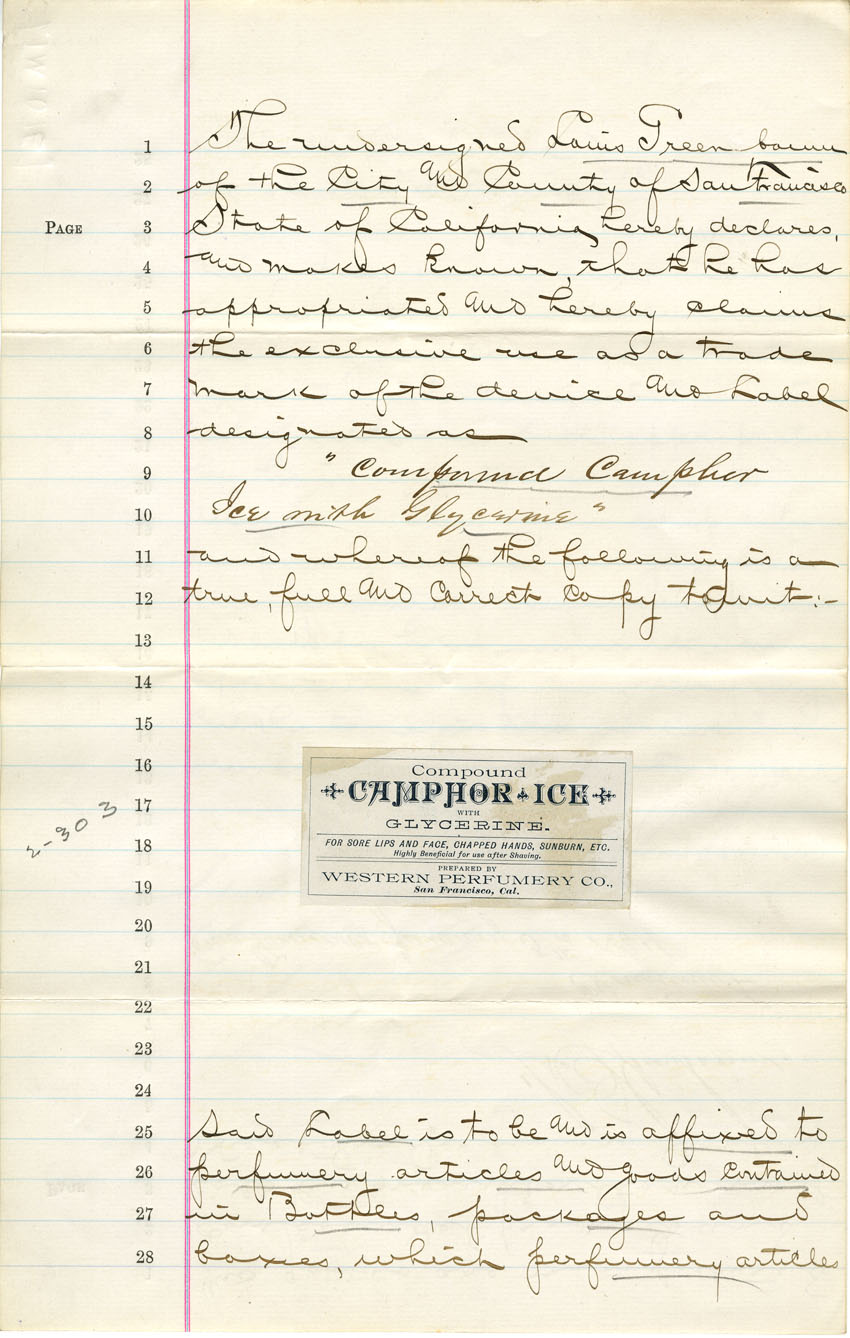 1 The undersigned Louis Greenbaum
2 of the City and County of San Francisco
PAGE 3 State of California, hereby declares,
4 and makes known, that he has
5 appropriated and hereby claims
6 the exclusive use as a trade
7 mark of the device and Label
8 designated as
9 "Compound Camphor
10 Ice with Glycerine"
11 and whereof the following is a
12 true, full and correct copy towit:-
13
14
15
16
17
18
19
20
21
22
23
24
2-303
Compound
CAMPHOR ICE
WITH
GLYCERINE.
FOR SORE LIPS AND FACE, CHAPPED HANDS, SUNBURN, ETC.
Highly Beneficial for use after Shaving.
PREPARED BY
WESTERN PERFUMERY CO.,
San Francisco, Cal.
25 Said Label is to be and is affixed to
26 perfumery articles and goods contained
27 in Bottles, packages and
28 boxes, which perfumery articles